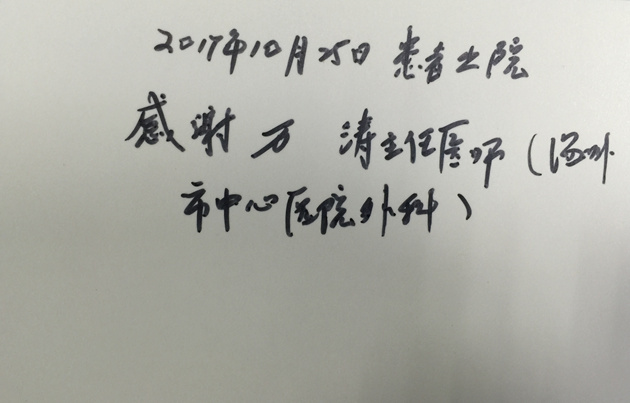 2017年10月25日 患者出院
感谢 万 涛主任医师(
市中心医院外科)